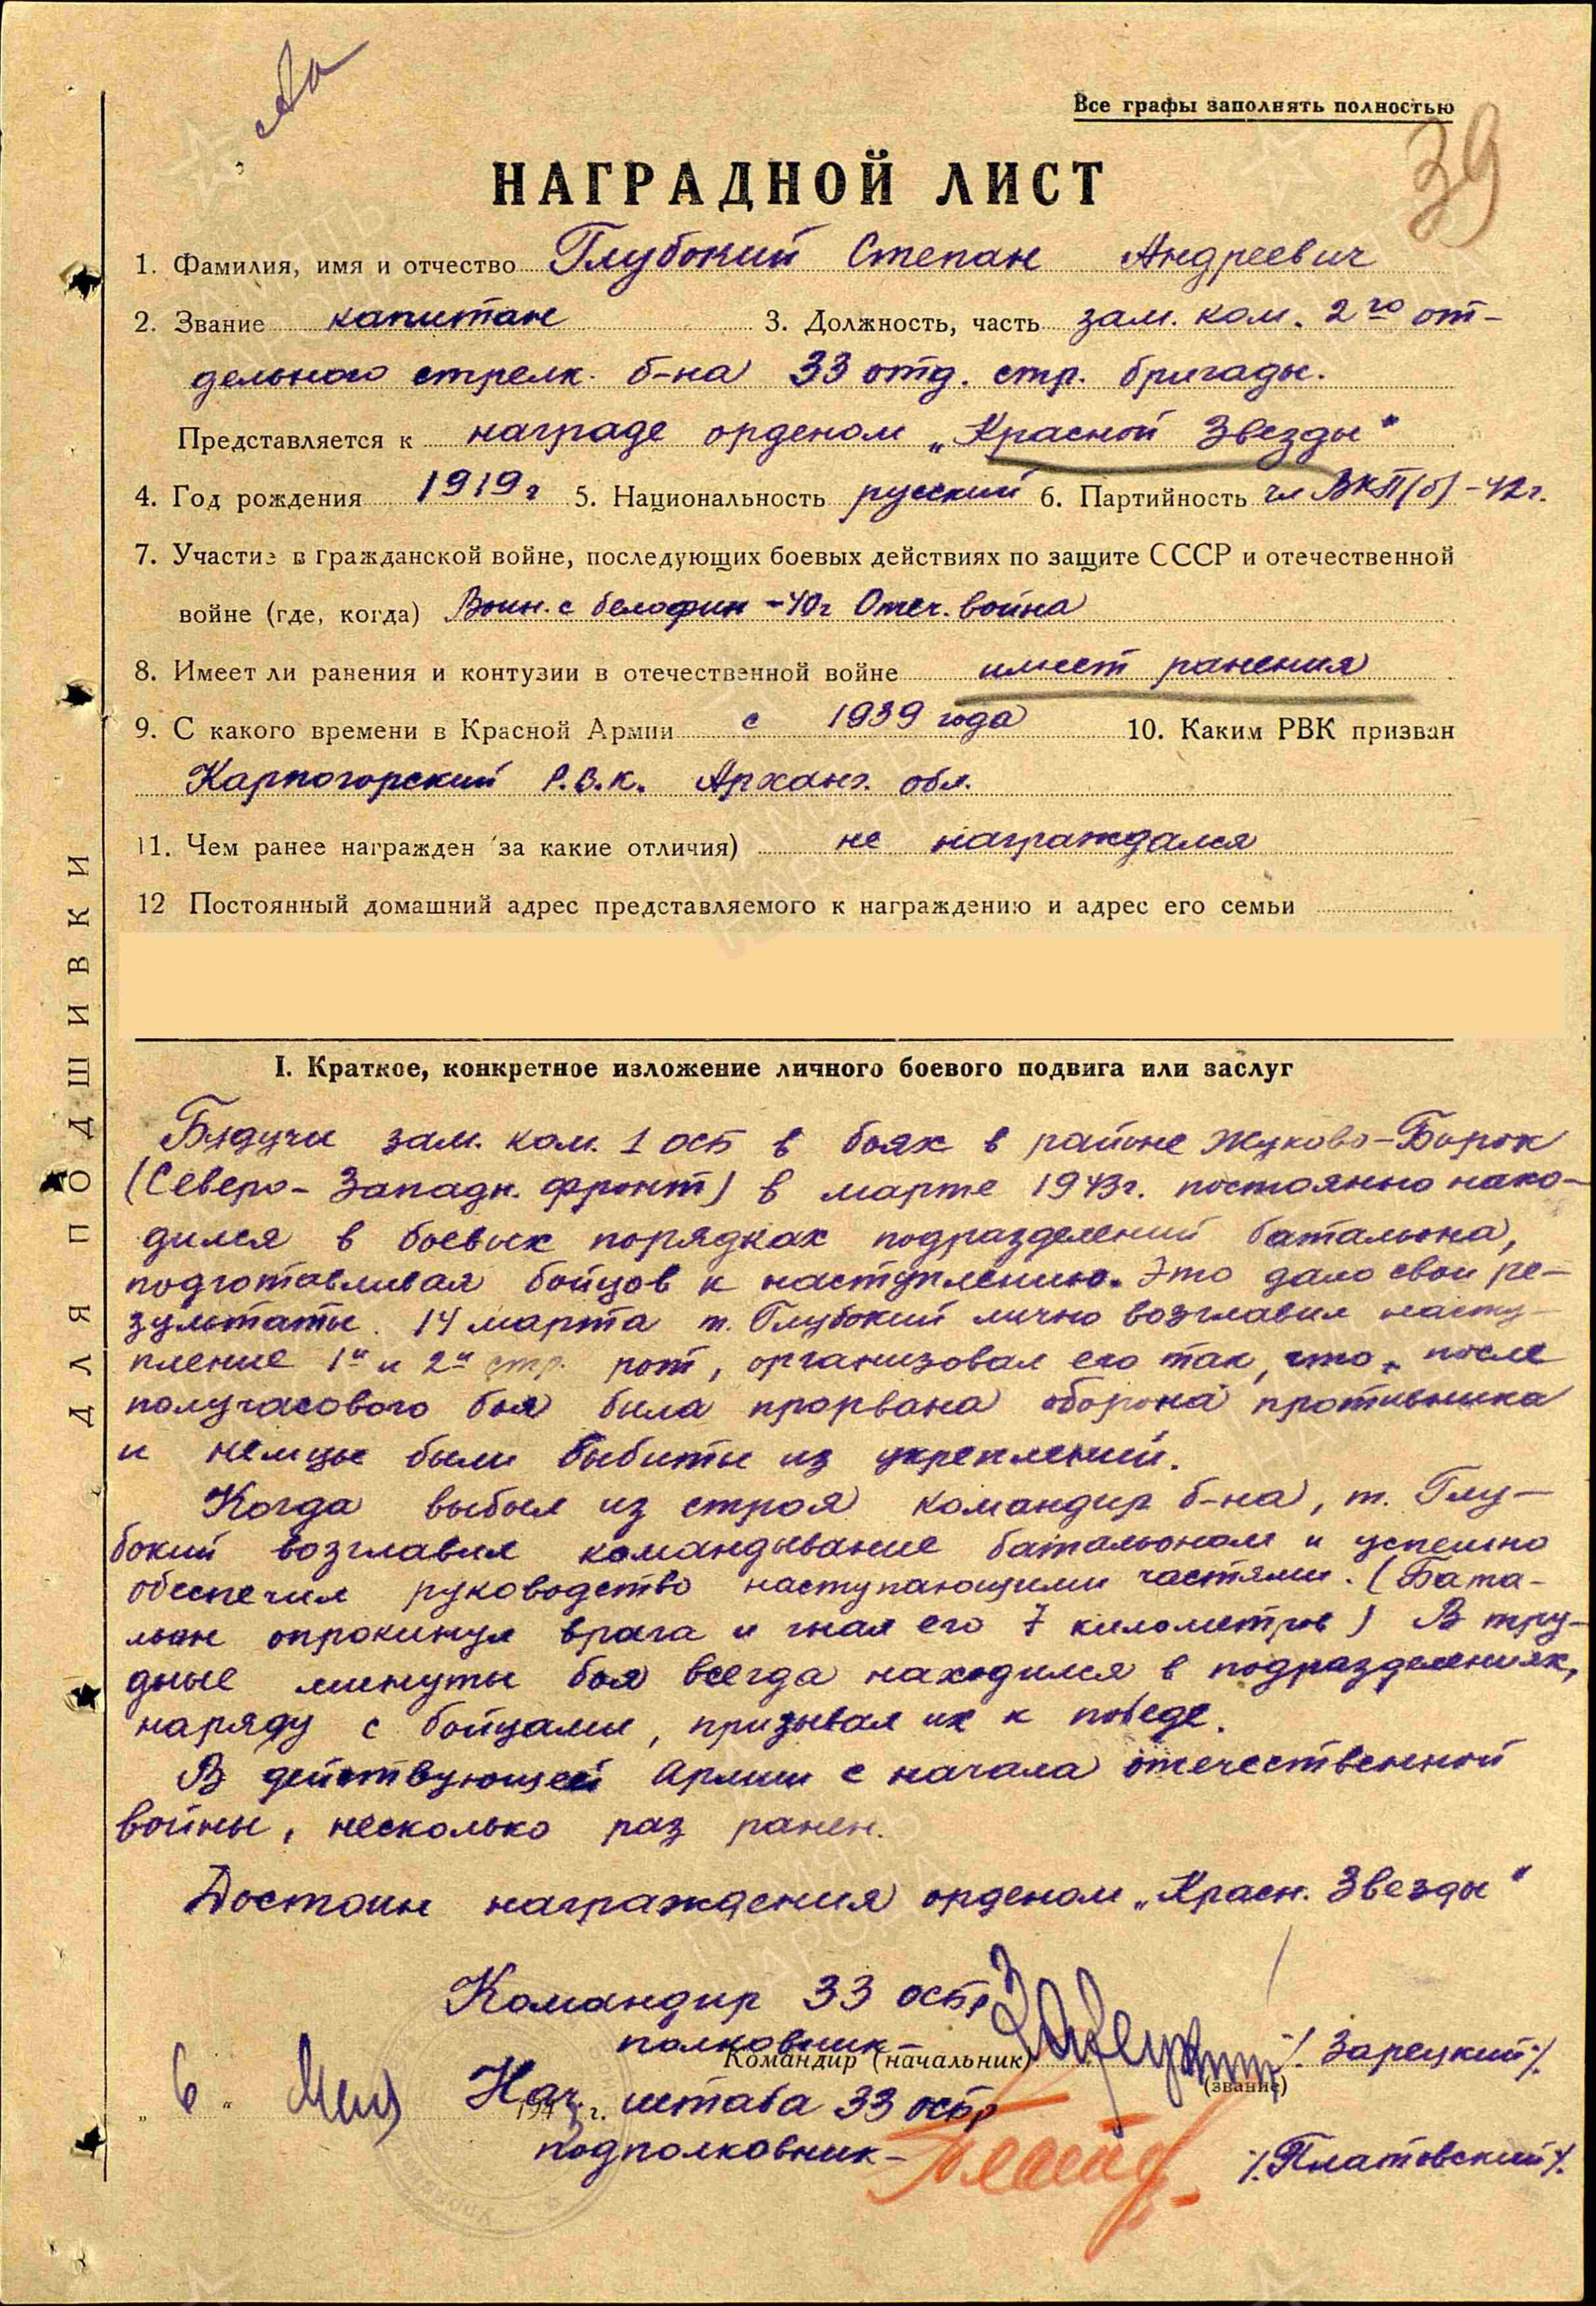 Все графы заполнять полностью
39
НАГРАДНОЙ ЛИСТ
1. Фамилия, имя и отчество Глубокий Степан Андреевич
2. Звание капитан 3. Должность, часть зам. ком. 2го от-
дельного стрелк. б-на 33 отд. стр. бригады.
Представляется к награде орденом „Красной Звезды"
4. Год рождения 1919г 5. Национальность русский 6. Партийность чл ВКП(б) -42г.
7. Участие в гражданской войне, последующих боевых действиях по защите СССР и отечественной
войне (где, когда) Воин. с белофин -40г Отеч. война
8. Имеет ли ранения и контузии в отечественной войне имеет ранения
9. С какого времени в Красной Армии с 1939 года 10. Каким РВК призван
Карпогорский Р.В.К. Арханг. обл.
11. Чем ранее награжден за какие отличия) не награждался
12 Постоянный домашний адрес представляемого к награждению и адрес его семьи
ДЛЯ ПОДШИВКИ
I. Краткое, конкретное изложение личного боевого подвига или заслуг
Будучи зам. ком. 1 осб в боях в районе Жуково-Борок
(Северо-Западн. фронт) в марте 1943г. постоянно нахо-
дился в боевых порядках подразделений батальона,
подготавливая бойцов к наступлению. Это дало свои ре-
зультаты. 14 марта т. Глубокий лично возглавил насту-
пление 1й и 2й стр. рот, организовал его так, что, после
получасового боя была прорвана оборона противника
и немцы были выбиты из укреплений.
Когда выбыл из строя командир б-на, т. Глу-
бокий возглавил командывание батальоном и успешно
обеспечил руководство наступающими частями. (Бата-
льон опрокинул врага и гнал его 7 километров) В тру-
дные минуты боя всегда находился в подразделениях,
наряду с бойцами, призывал их к победе.
В действующей Армии с начала отечественной
войны, несколько раз ранен.
Достоин награждения орденом „Красн. Звезды"
Командир 33 осбр
полковник- /. Зарецкий/.
Командир (начальник)
(звание)
„ 6 " Мая 1943 г.
Нач. штаба 33 осбр
подполковник- /.Платовский/.